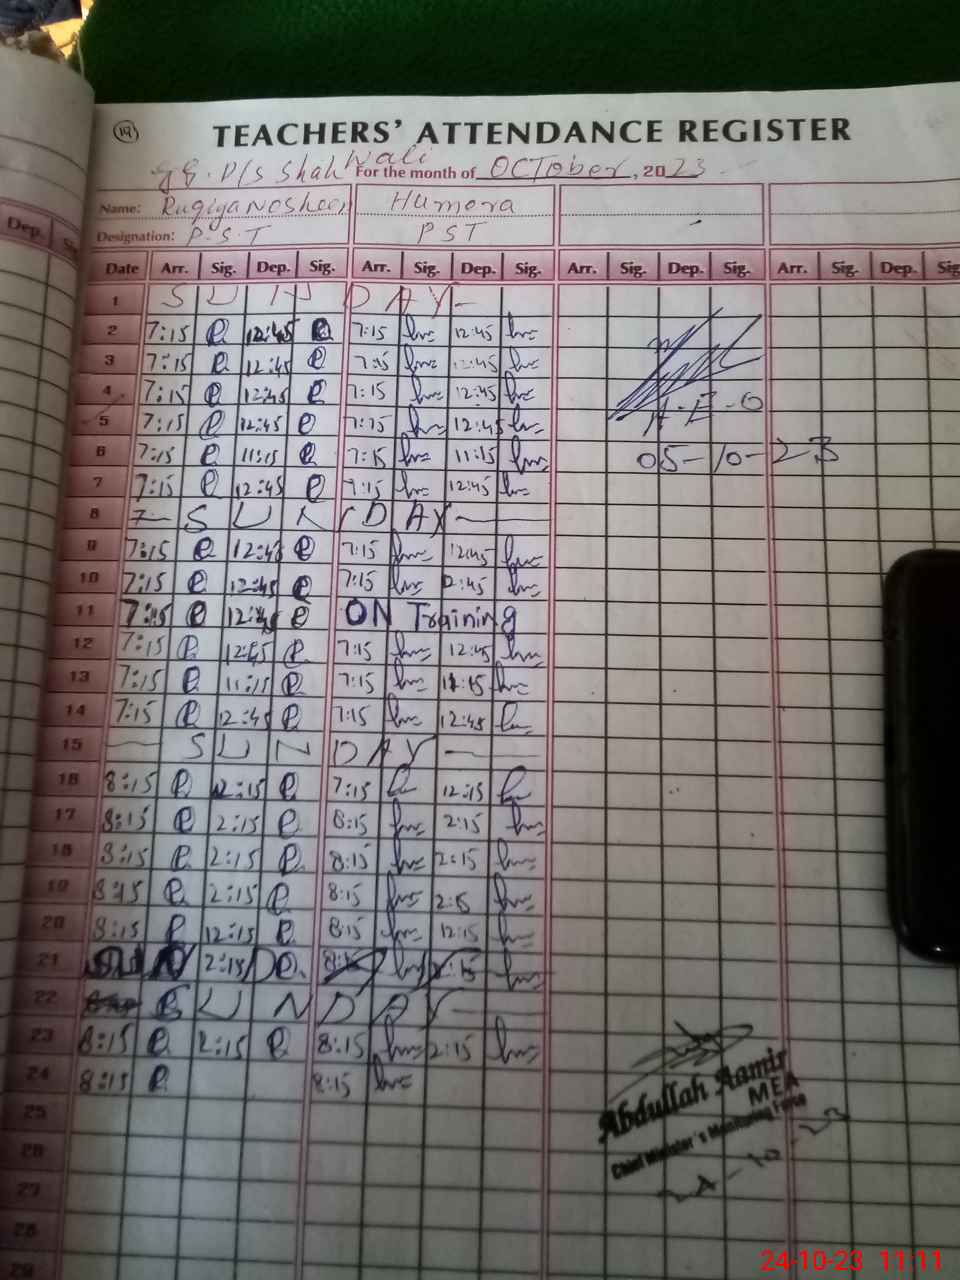 19
TEACHERS' ATTENDANCE REGISTER
G.G. P/S Shah Wali For the month of OCTober, 2023
Name: Ruqiya Nosheen Humera
Designation: P.S.T PST
Dep.
Date Arr. Sig. Dep. Sig. Arr. Sig. Dep. Sig. Arr. Sig. Dep. Sig. Arr. Sig. Dep. Sig
1 S U N D A Y
2 7:15 12:45 7:15 12:45
3 7:15 12:45 7:15 12:45
4 7:15 12:45 7:15 12:45
A-E-O
5 7:15 12:45 7:15 12:45
6 7:15 11:15 7:15 11:15
05-10-23
7 7:15 12:45 7:15 12:45
8 S U N D A Y
9 7:15 12:45 7:15 12:45
10 7:15 12:45 7:15 12:45
11 7:15 12:45 ON Training
12 7:15 12:45 7:15 12:45
13 7:15 11:15 7:15
14 7:15 12:45 7:15 12:45
15 S U N D A Y
16 8:15 12:15 7:15 12:15
17 8:15 2:15 8:15 2:15
18 8:15 2:15 8:15 2:15
19 8:15 2:15 8:15 2:15
20 8:15 12:15 8:15 12:15
21 2:15
22 S U N D A Y
23 8:15 2:15 8:15 2:15
24 8:15 8:15
25
26
27
28
29
Abdullah Aamir
MEA
Chief Minister's Monitoring Force
24-10-23
24-10-23 11:11